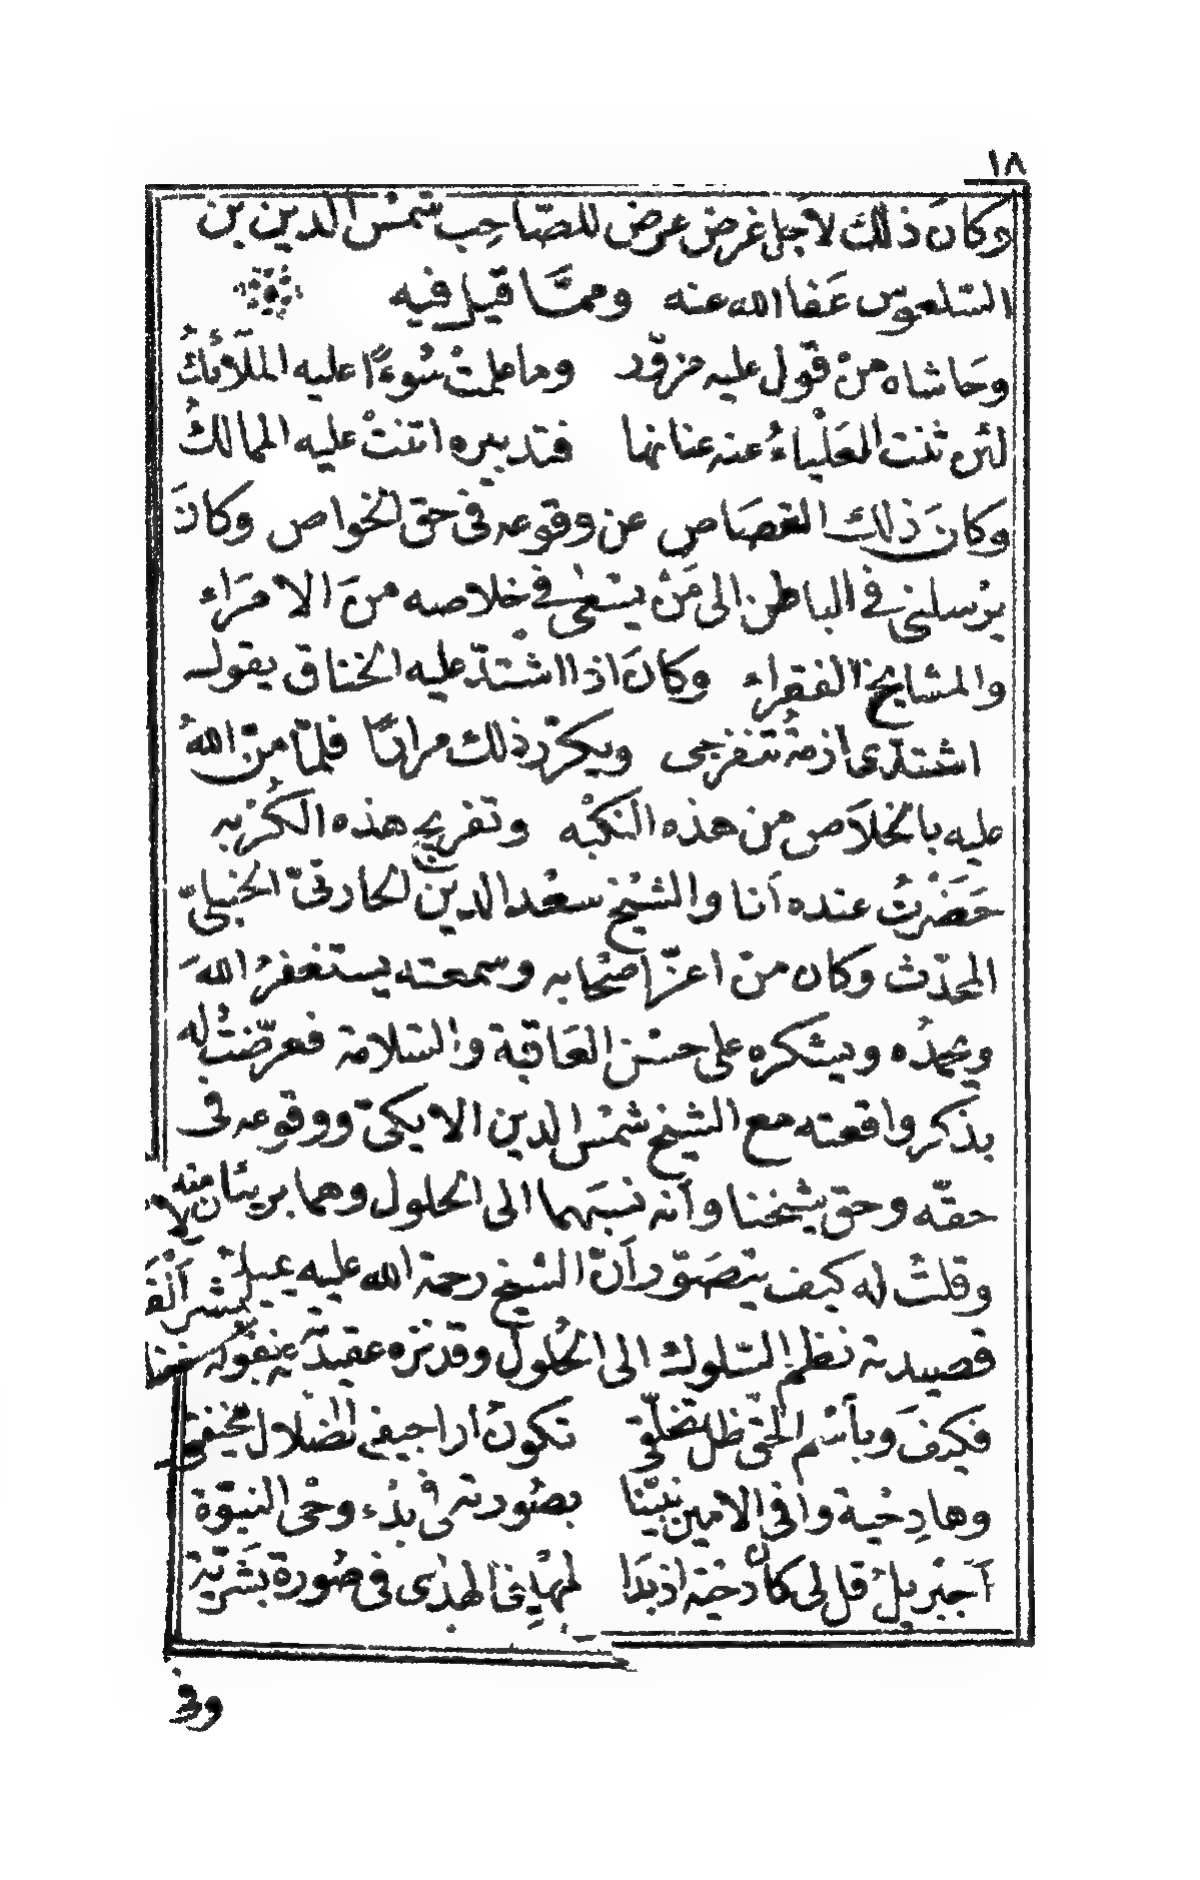 ١٨
وكَانَ ذلك لاجل غرض عرض للصّاحِب شمس الدين بن
السّلعوس عَفا الله عنه ومـمّـا قيل فيه
وحَاشاه منْ قول عليه مزوّر وما علمتْ سُوءًا عليه الملَائكُ
لئن ثنت العَلْياءُ عنه عنانها فتدبيره اثنتْ عليه الممالكُ
وكانَ ذلك القصَاص عن وقوعه فى حق الخواص وكانَ
يرْسلنى فى الباطن الى مَنْ يسْعىٰ فى خلاصه منَ الامرَاء
والمشايخ الفقراء وكانَ اذا اشتدّ عليه الخناق يقول
اشتدّى ازمةُ تنفرجى ويكرّر ذلك مرارًا فلمّا منّ اللهُ
عليه بالخلَاص من هذه النكبْه وتفريج هذه الكُرْبه
حَضَرْتُ عنده أنا والشيْخ سعْد الدين الحارثىّ الحنبلىّ
المحدّث وكان منْ اعزّ اصْحابه وسمعته يستغفرُ اللهَ
ويحمدُه ويشكره على حسْن العَاقبة والسّلامة فعرّضْتُ له
بذكر واقعته مع الشيخ شمْس الدين الايكى ووقوعه فى
حقّه وحق شيخنا وأنه نسَبَهما الى الحلول وهما بريئان منه
وقلتُ له كيف يتصَوّر أنّ الشيخ رحمة الله عليه يميل
قصيدته نظم السّلوك الى الحُلول وقد نزه عقيدته بقوله
فكيْفَ وبأسْم الحقّ ظل تخلّقى تكونُ اراجيفى الضلال مخيفتى
وها دِحْية وافى الامين نبيّنا بصُورته فى بدْء وحْى النبوّة
أجبْريلُ قل لى كان دحْية اذ بدَا لمهْدِى الهدى فى صُورة بشريّة
وفى